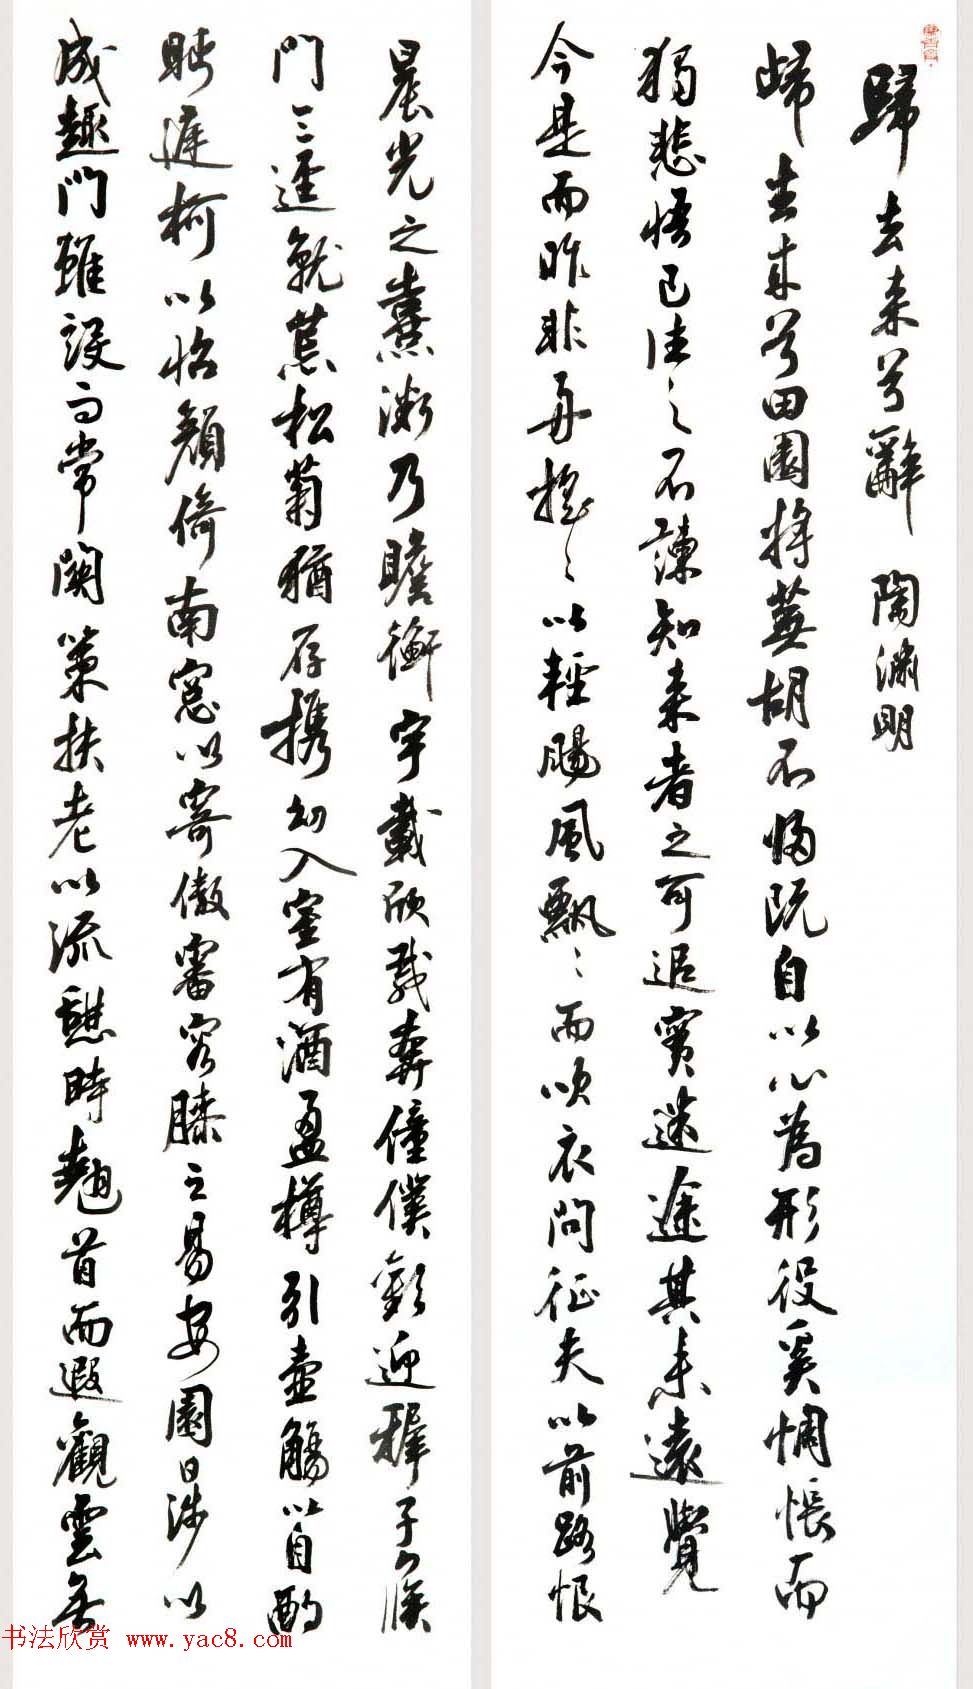 歸去来兮辭 陶淵明
歸去来兮田園将蕪胡不歸既自以心為形役奚惆悵而
獨悲悟已往之不諫知来者之可追實迷途其未遠覺
今是而昨非舟摇〻以輕颺風飄〻而吹衣問征夫以前路恨
晨光之熹微乃瞻衡宇載欣載奔僮僕歡迎穉子候
門三逕就荒松菊猶存携幼入室有酒盈樽引壺觴以自酌
眄庭柯以怡顏倚南窓以寄傲審容膝之易安園日涉以
成趣門雖設而常關策扶老以流憩時翹首而遐觀雲無
书法欣赏 www.yac8.com